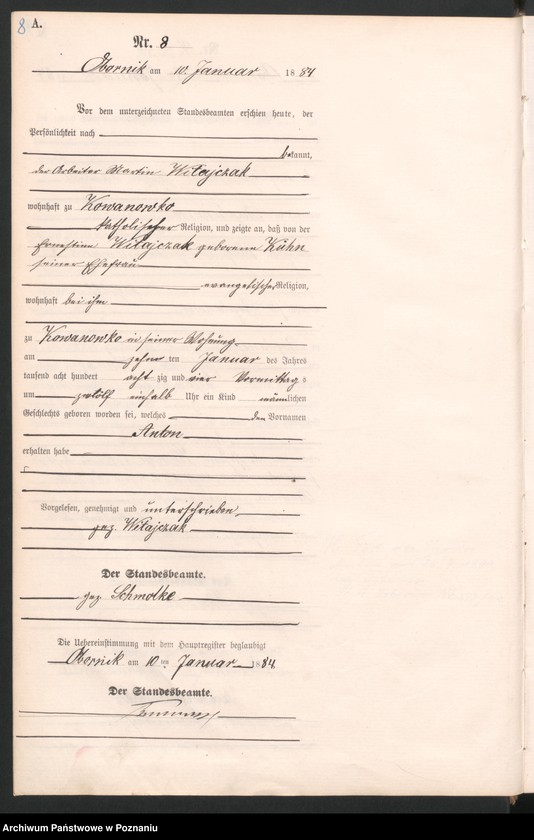 8 A.
Nr. 8
Obornik am 10. Januar 1884
Vor dem unterzeichneten Standesbeamten erschien heute, der
Persönlichkeit nach
bekannt,
der Arbeiter Martin Witajczak
wohnhaft zu Kowanowko
katholischer Religion, und zeigte an, daß von der
Ernestine Witajczak geborene Kühn
seiner Ehefrau
evangelischer Religion,
wohnhaft bei ihm
zu Kowanowko in seiner Wohnung
am zehn ten Januar des Jahres
tausend acht hundert acht zig und vier Vormittag s
um zwölf einhalb Uhr ein Kind männlichen
Geschlechts geboren worden sei, welches den Vornamen
Anton
erhalten habe
Vorgelesen, genehmigt und unterschrieben
gez. Witajczak
Der Standesbeamte.
gez. Schmolke
Die Uebereinstimmung mit dem Hauptregister beglaubigt
Obornik am 10ten Januar 1884.
Der Standesbeamte.
Archiwum Państwowe w Poznaniu